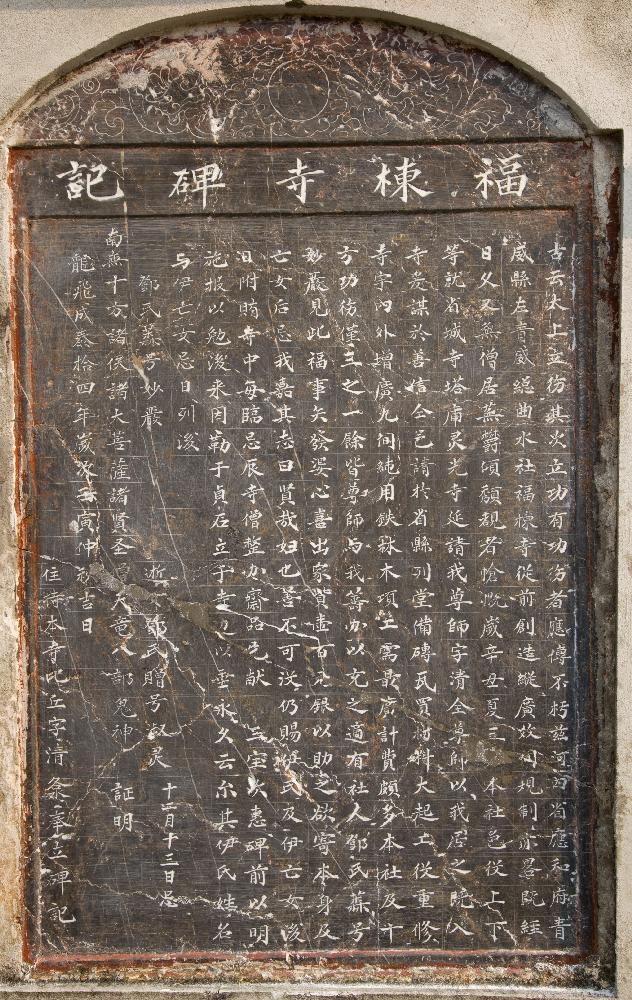 福棟寺碑記
古云太上立德其次立功有功德者應傳不朽兹河内省應和府青
威縣左青威總曲水社福棟寺從前創造縱廣故制規制亦畧阮經
日久又無僧居蕪欝頃頹覩者愴慨歲辛丑夏三 本社邑從上下
等就省城寺塔庸灵光寺延請我尊師字清全尊師以我居之阮入
寺爰謀於善信仝邑請於省縣列堂備磚瓦買材料大起工役重修
寺宇内外增廣九間純用鉄秝木項工需最廣計費頗多本社及十
方功德僅三之一餘皆尊師与我籌办以充之適有社人鄧氏蘂号
妙嚴見此福事矣發婆心喜出家貲壹百元銀以助之欲寄本身及
亡女后忌我嘉其志曰賢哉妇也善不可没仍賜鄧氏及伊亡女後
忌附晴寺中每臨忌辰寺僧整办齋品已献 三宝次惠碑前以明
施报以勉後来因勒于貞石立于寺边以垂永久云尔其伊氏姓名
与伊亡女忌日列後
鄧氏蘂号妙嚴 逝 鄧氏贈号淑灵 十二月十三日忌
南無十方諸佛諸大菩薩諸賢圣 天竜八部鬼神 証明
龍飛成泰拾四年歲次壬寅仲秋吉日
住持本寺比丘字清 奉立碑記